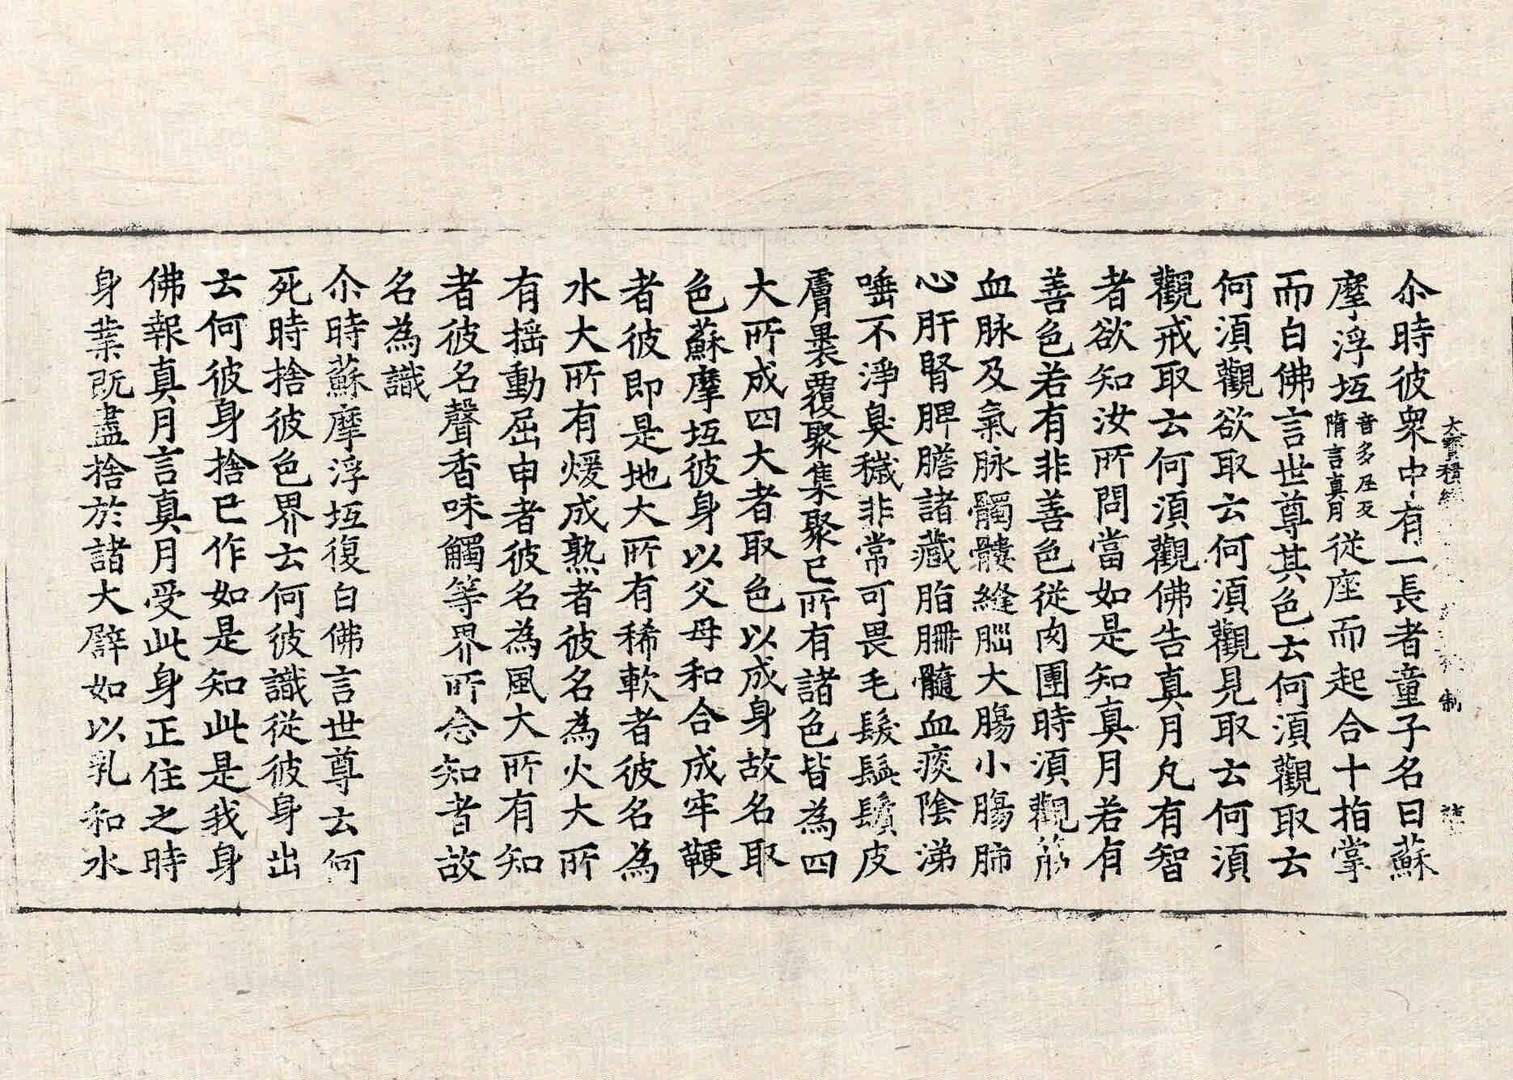 大寶積經
制
尒時彼衆中有一長者童子名曰蘇
摩浮坻音多履反隋言真月從座而起合十指掌
而白佛言世尊其色去何湏觀取云
何湏觀欲取云何湏觀見取云何湏
觀戒取云何湏觀佛告真月凡有智
者欲知汝所問當如是知真月若有
善色若有非善色從肉團時湏觀筋
血脉及氣脉髑髏縫𦛁大腸小腸肺
心肝腎脾膽諸藏脂𦙱髓血痰陰涕
唾不淨臭穢非常可畏毛髮髭鬚皮
膚裹覆聚集聚已所有諸色皆為四
大所成四大者取色以成身故名取
色蘇摩坻彼身以父母和合成牢鞕
者彼即是地大所有稀軟者彼名為
水大所有煖成熟者彼名為火大所
有揺動屈申者彼名為風大所有知
者彼名聲香味觸等界所念知者故
名為識
尒時蘇摩浮坻復白佛言世尊云何
死時捨彼色界云何彼識從彼身出
云何彼身捨已作如是知此是我身
佛報真月言真月受此身正住之時
身業既盡捨於諸大譬如以乳和水